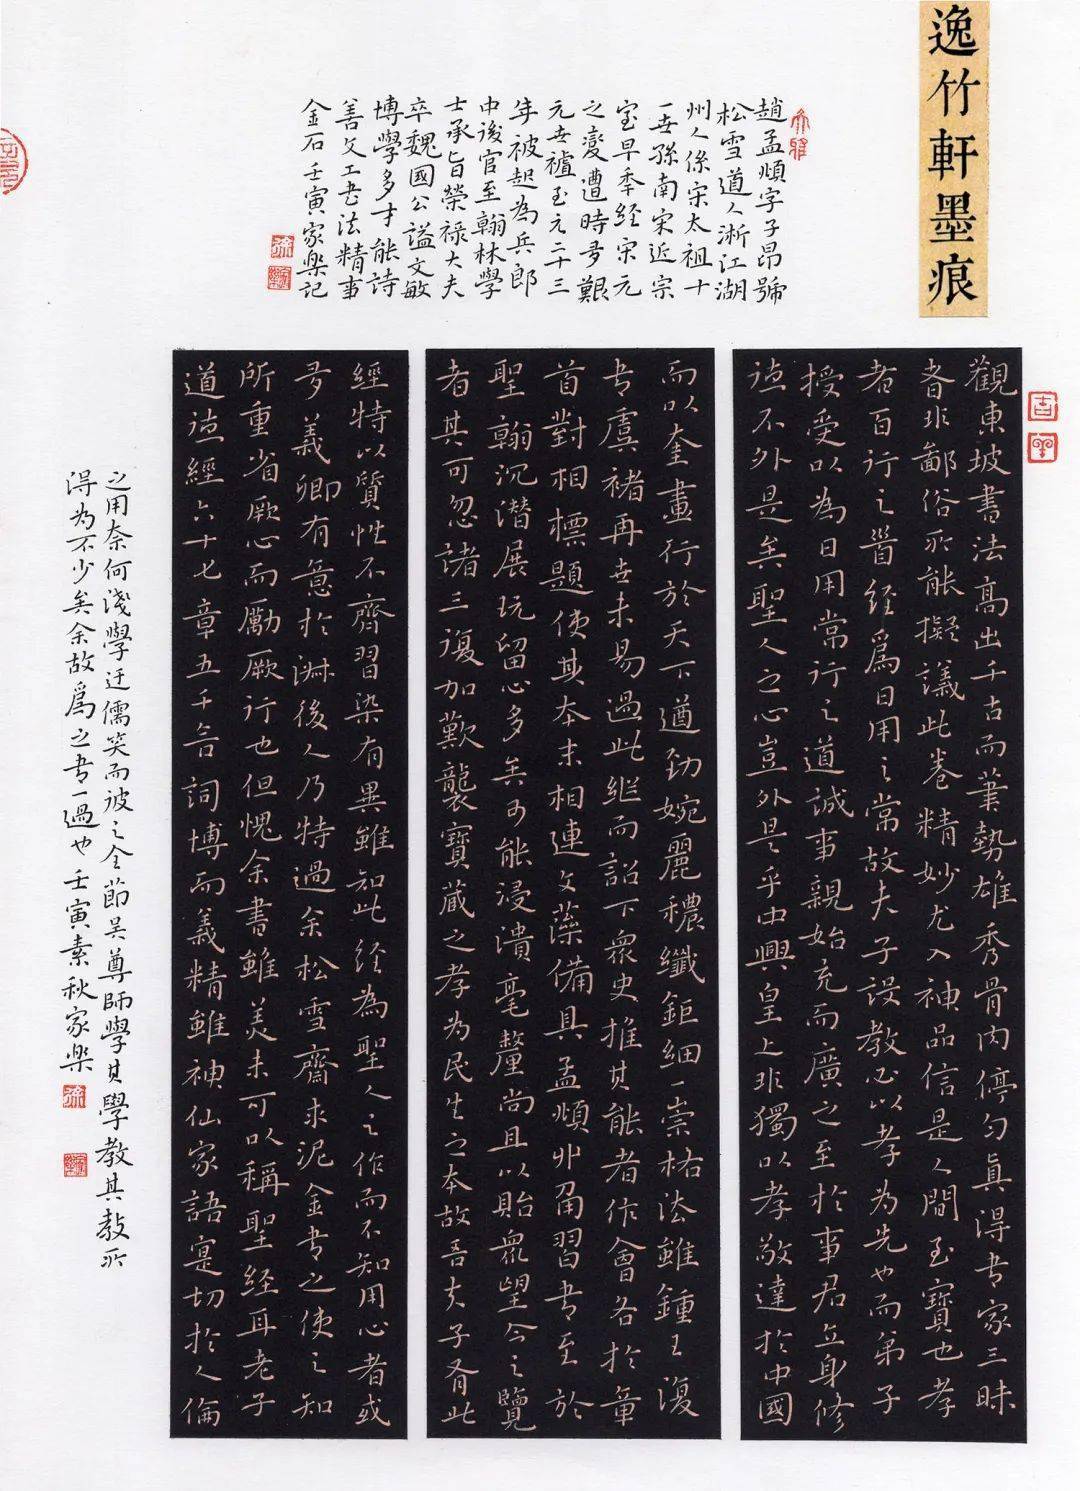 逸竹軒墨痕
趙孟頫字子昂號
松雪道人浙江湖
州人係宋太祖十
一世孫南宋近宗
室早年經宋元
之變遭時多艱
元世祖至元二十三
年被起為兵郎
中後官至翰林學
士承旨榮祿大夫
卒魏國公謚文敏
博學多才能詩
善文工書法精事
金石壬寅家樂記
觀東坡書法高出千古而筆勢雄秀骨肉停勻真得書家三昧
者非鄙俗所能擬議此卷精妙尤入神品信是人間至寶也孝
者百行之首經為日用之常故夫子設教必以孝為先也而弟子
授受以為日用常行之道誠事親始充而廣之至於事君立身修
德不外是矣聖人之心豈外是乎中興皇上非獨以孝敬達於中國
而以奎畫行於天下遒勁婉麗穠纖鉅細一崇祐法雖鍾王復
書虞褚再世未易過此繼而詔下眾史推其能者作會各於章
首對相標題使其本末相連文藻備具孟頫丱角習書至於
聖翰沉潛展玩留心多矣可能浸潰毫釐尚且以貽眾望今之覽
者其可忽諸三復加歎襲寶藏之孝為民生之本故吾夫子有此
經特以質性不齊習染有異雖知此經為聖人之作而不知用心者或
多義卿有意於淑後人乃特過余松雪齋求泥金書之使之知
所重省厥心而勵厥行也但愧余書雖美未可以稱聖經耳老子
道德經六十七章五千言詞博而義精雖神仙家語寔切於人倫
之用奈何淺學迂儒笑而彼之全節吳尊師學其學教其教所
得為不少矣余故為之書一過也壬寅素秋家樂